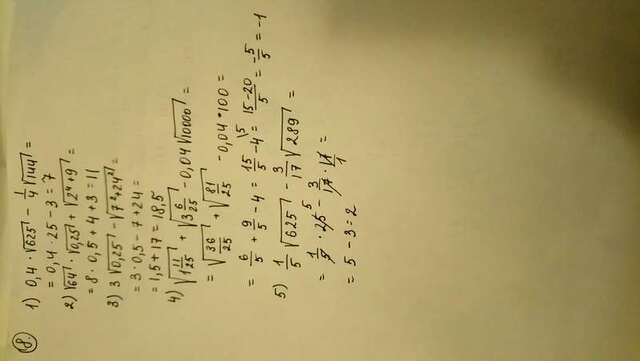 8.
1) 0,4 · √625 − 1/4 √144 =
= 0,4 · 25 − 3 = 7
2) √64 · √0,25 + √(2⁴+9) =
= 8 · 0,5 + 4 + 3 = 11
3) 3 √0,25 − √(7²+24²) =
= 3 · 0,5 − 7 + 24 =
= 1,5 + 17 = 18,5
4) √(1 11/25) + √(3 6/25) − 0,04 √10000 =
= √(36/25) + √(81/25) − 0,04 · 100 =
= 6/5 + 9/5 − 4 = 15/5 − 4\5 = (15−20)/5 = −5/5 = −1
5) 1/5 √625 − 3/17 √289 =
= 1/5 · 25 5 − 3/17 · 17/1 =
= 5 − 3 = 2